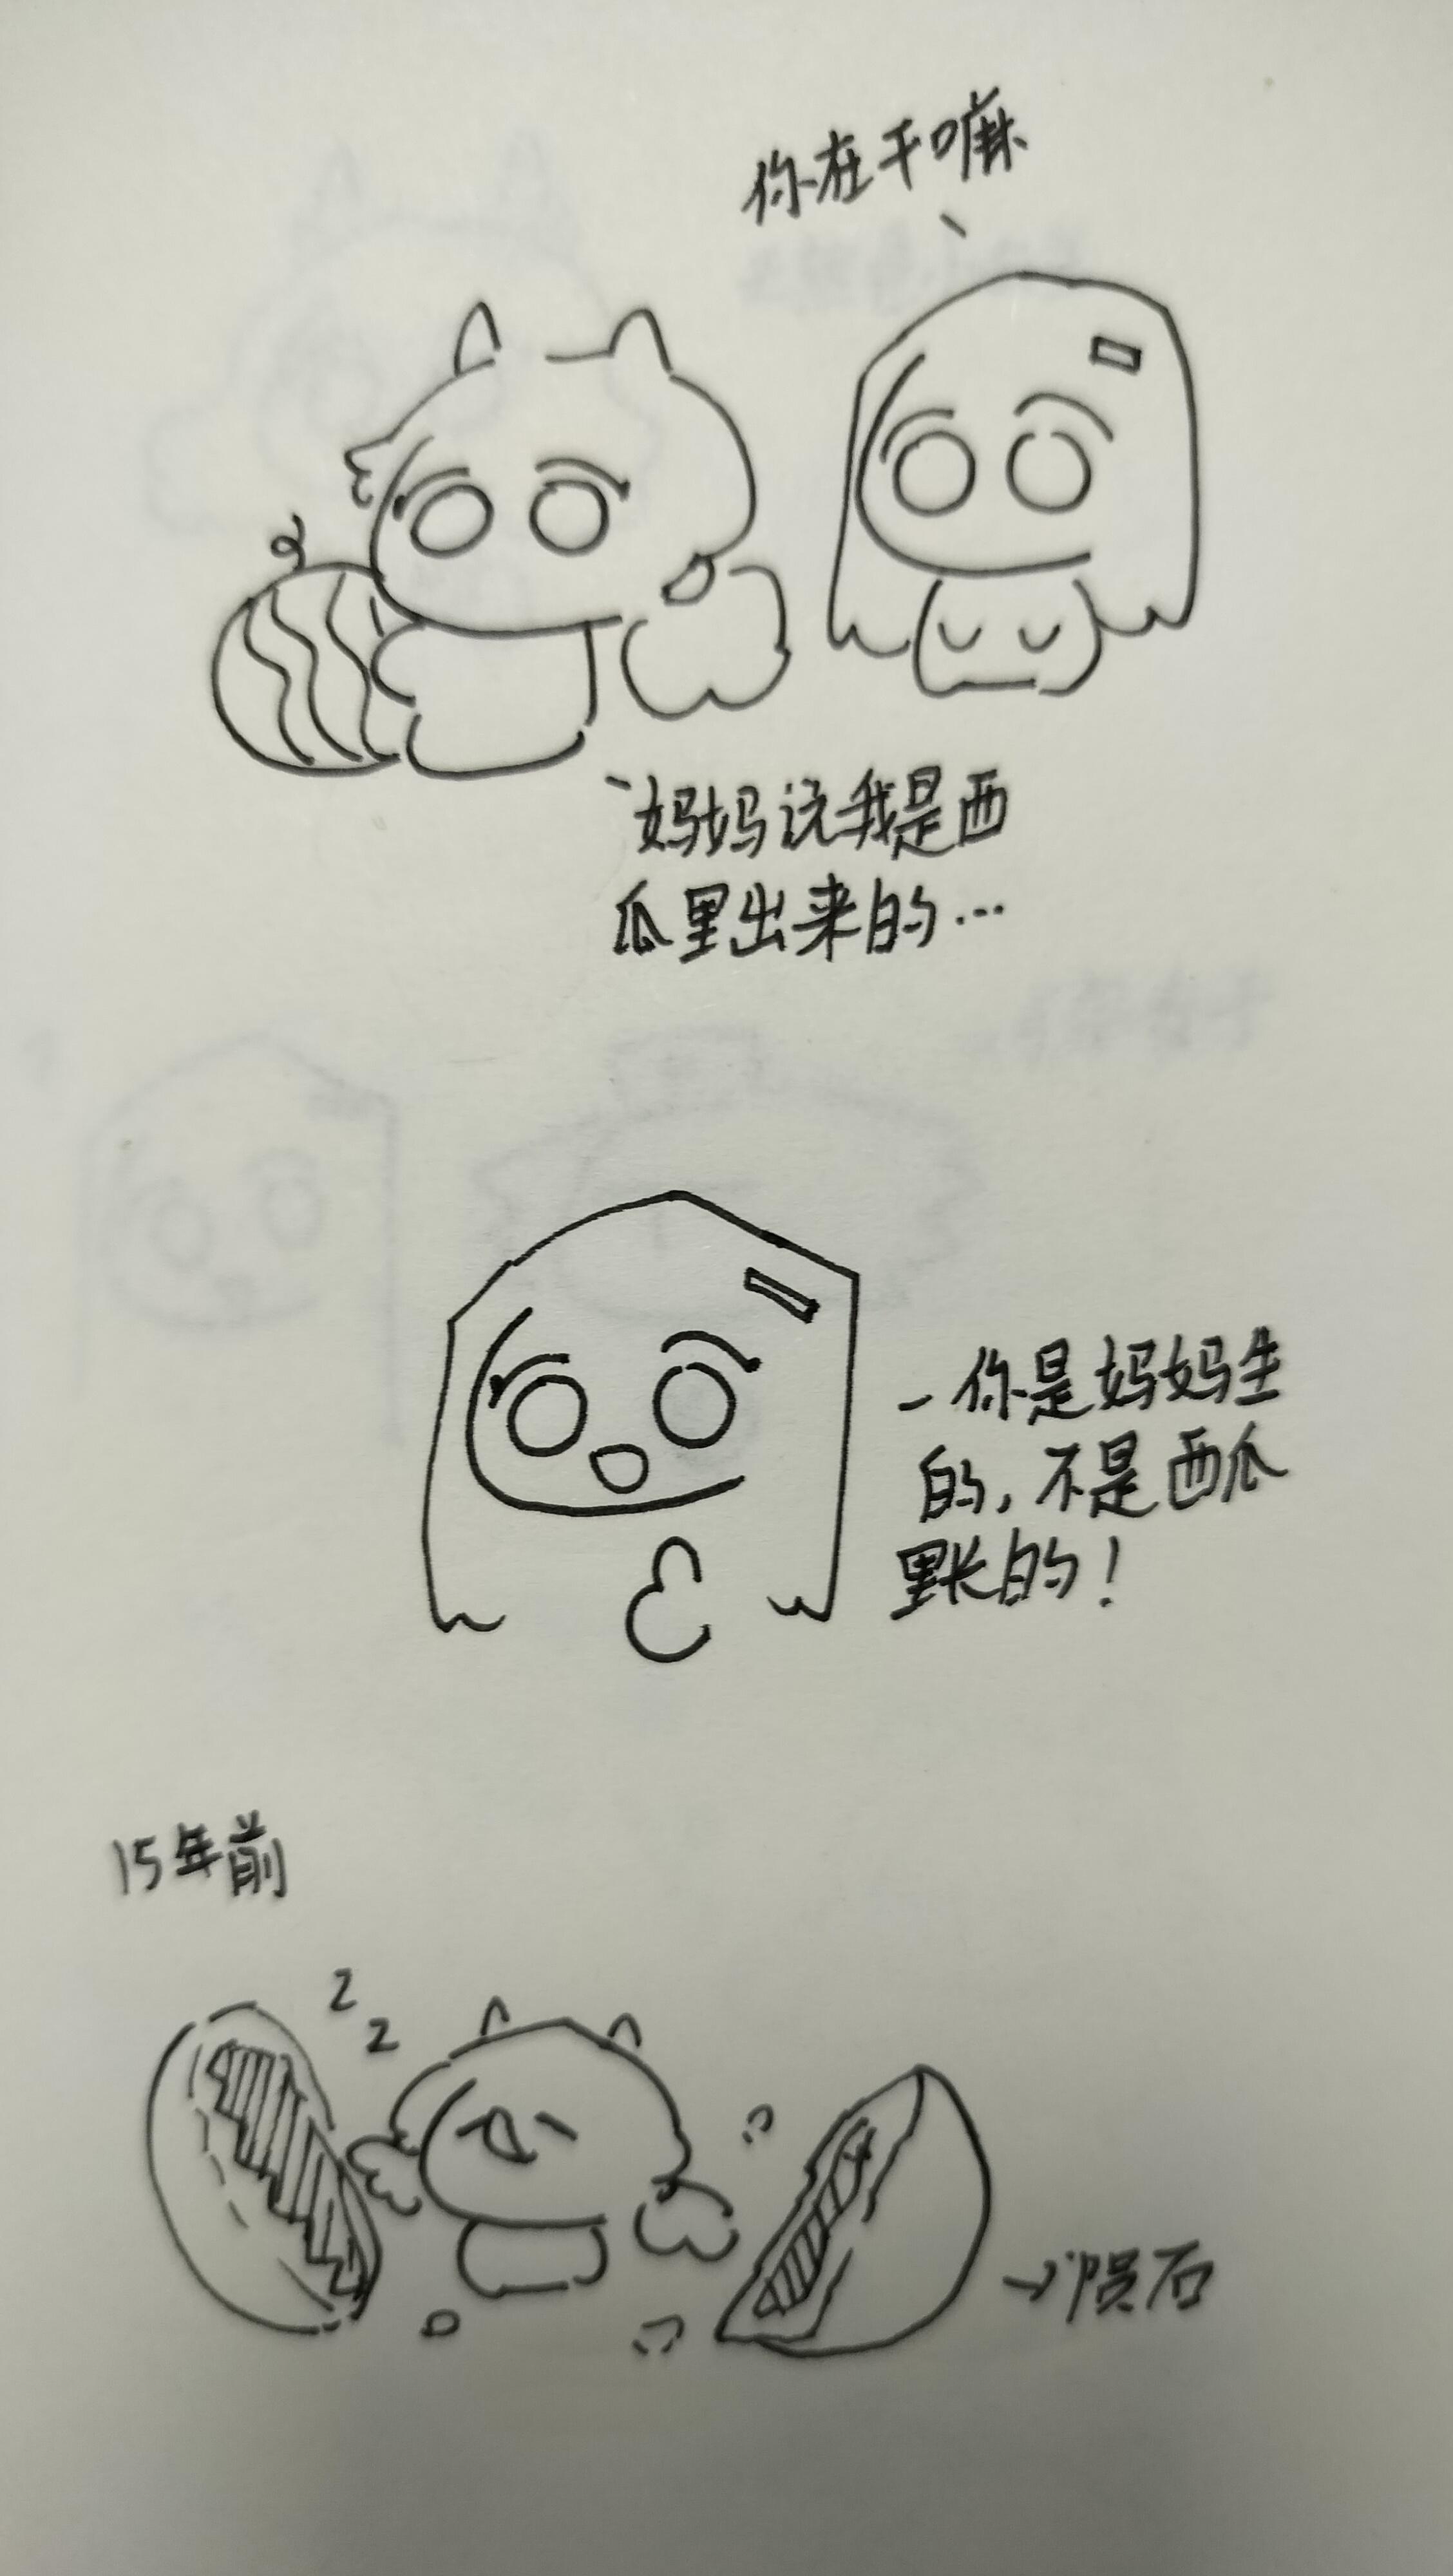 你在干嘛
妈妈说我是西
瓜里出来的…
你是妈妈生
的,不是西瓜
里长的!
15年前
z
z
陨石